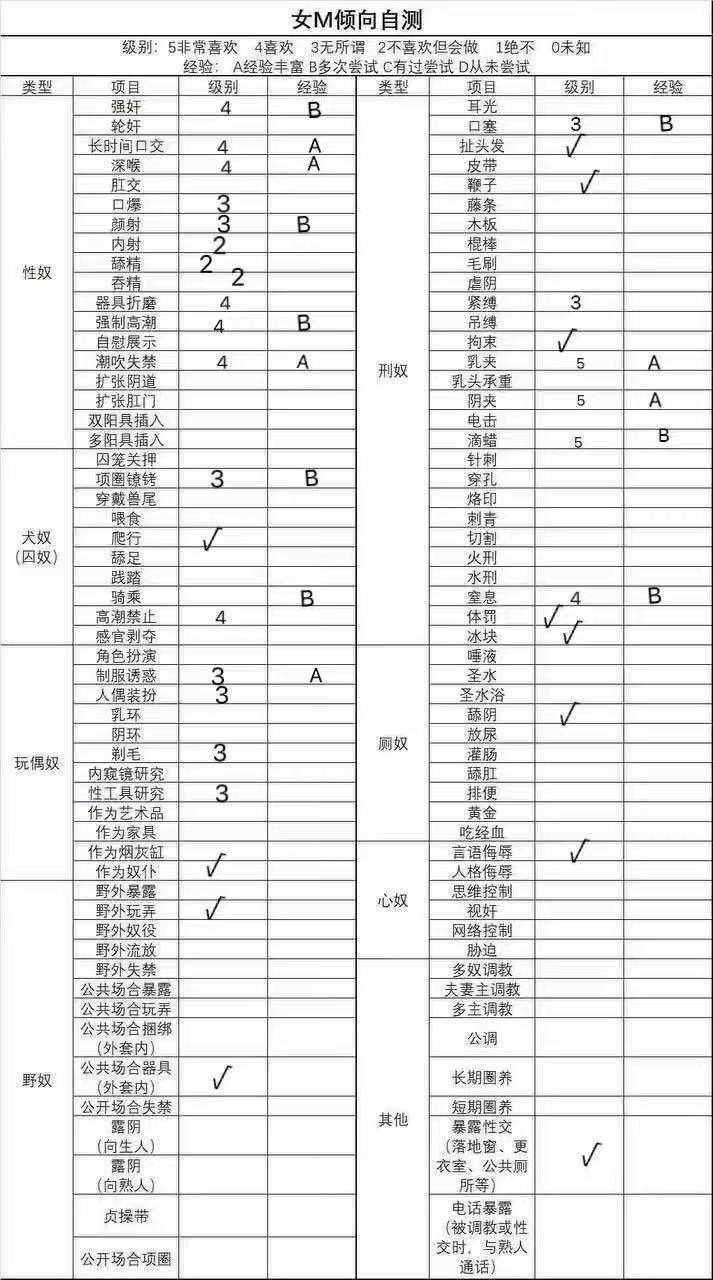 女M倾向自测
级别：5非常喜欢 4喜欢 3无所谓 2不喜欢但会做 1绝不 0未知
经验： A经验丰富 B多次尝试 C有过尝试 D从未尝试
类型 项目 级别 经验
性奴
强奸 4 B
轮奸
长时间口交 4 A
深喉 4 A
肛交
口爆 3
颜射 3 B
内射 2
舔精 2
吞精 2
器具折磨 4
强制高潮 4 B
自慰展示
潮吹失禁 4 A
扩张阴道
扩张肛门
双阳具插入
多阳具插入
犬奴
(囚奴)
囚笼关押
项圈镣铐 3 B
穿戴兽尾
喂食
爬行 √
舔足
践踏
骑乘 B
高潮禁止 4
感官剥夺
玩偶奴
角色扮演
制服诱惑 3 A
人偶装扮 3
乳环
阴环
剃毛 3
内窥镜研究
性工具研究 3
作为艺术品
作为家具
作为烟灰缸
作为奴仆 √
野奴
野外暴露
野外玩弄 √
野外奴役
野外流放
野外失禁
公共场合暴露
公共场合玩弄
公共场合捆绑
(外套内)
公共场合器具
(外套内) √
公开场合失禁
露阴
(向生人)
露阴
(向熟人)
贞操带
公开场合项圈
类型 项目 级别 经验
刑奴
耳光
口塞 3 B
扯头发 √
皮带
鞭子 √
藤条
木板
棍棒
毛刷
虐阴
紧缚 3
吊缚
拘束 √
乳夹 5 A
乳头承重
阴夹 5 A
电击
滴蜡 5 B
针刺
穿孔
烙印
刺青
切割
火刑
水刑
窒息 4 B
体罚 √
冰块 √
厕奴
唾液
圣水
圣水浴
舔阴 √
放尿
灌肠
舔肛
排便
黄金
吃经血
心奴
言语侮辱 √
人格侮辱
思维控制
视奸
网络控制
胁迫
其他
多奴调教
夫妻主调教
多主调教
公调
长期圈养
短期圈养
暴露性交
(落地窗、更
衣室、公共厕
所等) √
电话暴露
(被调教或性
交时，与熟人
通话)